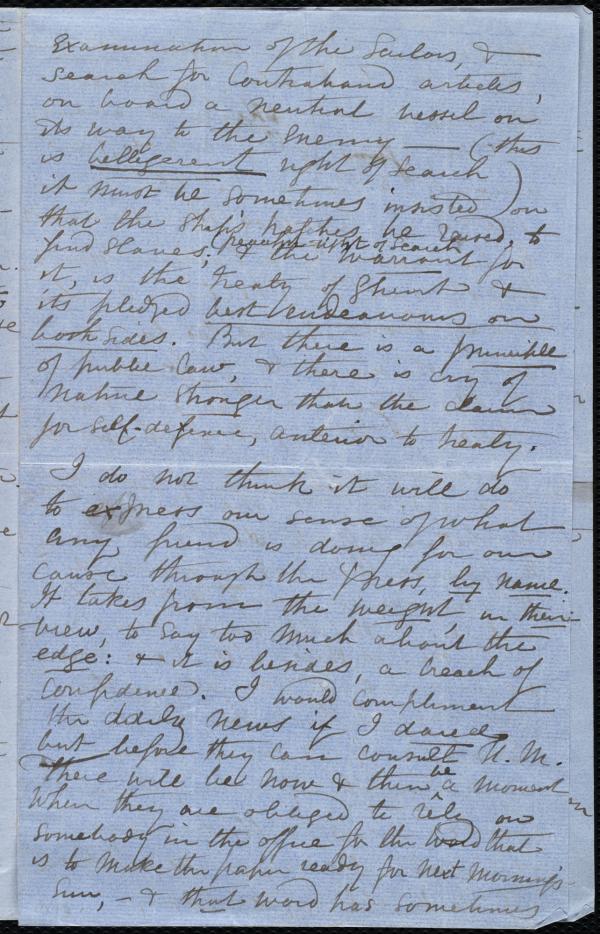 Examination of the Sailors, &
search for Contraband articles,
on board a neutral vessel on
its way to the Enemy — (this
is belligerent right of Search)
it must be sometimes insisted on
that the ship's hatches be raised, to
find slaves; (peaceful right of Search
& the warrant for
it, is the treaty of Ghent &
its pledged best endeavours on
both sides. But there is a principle
of public law, & there is cry of
nature stronger than the claim
for self-defence, anterior to treaty.
I do not think it will do
to express our sense of what
any friend is doing for our
cause through the Press, by name.
It takes from the weight, in their
view, to say too much about the
edge: & it is besides, a breach of
confidence. I would compliment
the daily news if I dared,
but before they can consult H. M.
there will be now & then be a moment
when they are obliged to rely on
somebody in the office for the word that
is to make the paper ready for next morning's
Sun, – & that word has sometimes